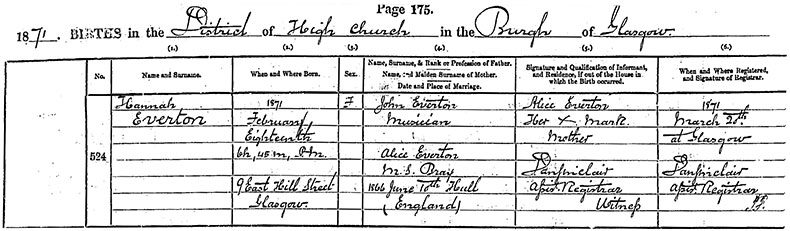 Page 175.
1871. BIRTHS in the District of High Church in the Burgh of Glasgow.
(1.) (2.) (3.) (4.) (5.) (6.)
No.
Name and Surname.
When and Where Born.
Sex.
Name, Surname, & Rank or Profession of Father.
Name, and Maiden Surname of Mother.
Date and Place of Marriage.
Signature and Qualification of Informant,
and Residence, if out of the House in
which the Birth occurred.
When and Where Registered,
and Signature of Registrar.
524
Hannah
Everton
1871
February
Eighteenth
6h, 45m, P.M.
9 East Hill Street
Glasgow.
F
John Everton
Musician
Alice Everton
M.S. Bray
1866 June 10th Hull
(England)
Alice Everton
Her X Mark
Mother
Registrar
Witness
1871
March 20th
at Glasgow
Registrar